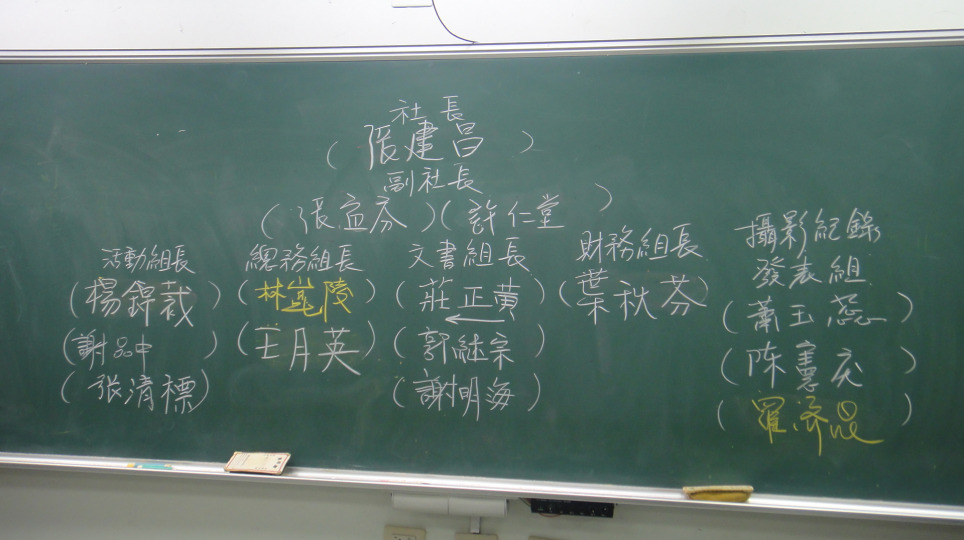 社長
(張建昌)
副社長
(張益芬)(許仁堂)
活動組長 總務組長 文書組長 財務組長 攝影紀錄
發表組
(楊錦裁) (林崑陵) (莊正黃) (葉秋芬) (蕭玉蕊)
(謝品中) (王月英) (郭繼宗) (陈憲庆)
(张清標) (謝明海) (羅濟昆)